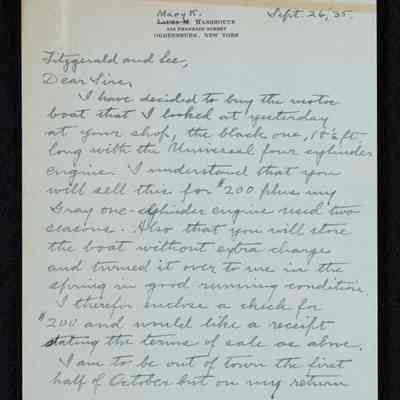 Mary K.
Laura M. Hasbrouck
Sept. 26, '35.
Ogdensburg, New York
Fitzgerald and Lee,
Dear Sirs,
I have decided to buy the motor
boat that I looked at yesterday
at your shop, the black one, 18½ ft
long with the Universal four cylinder
engine. I understand that you
will sell this for $200 plus my
Gray one-cylinder engine used two
seasons. Also that you will store
the boat without extra charge
and turned it over to me in the
spring in good running condition.
I therefor enclose a check for
$200 and would like a receipt
stating the terms of sale as above.
I am to be out of town the first
half of October but on my return